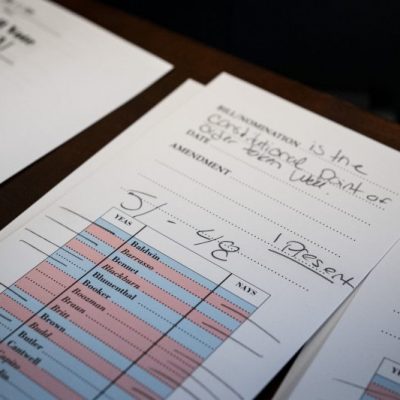 BILL/NOMINATION is the
Constitutional Point of
Order Well
DATE
AMENDMENT
51 - 48
1 Present
YEAS
NAYS
Baldwin
Barrasso
Bennet
Blackburn
Blumenthal
Booker
Boozman
Braun
Britt
Brown
Budd
Butler
Cantwell
Capito